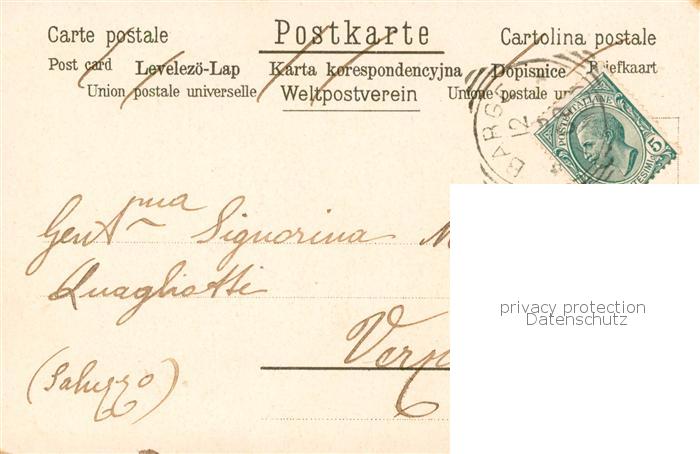 Carte postale Postkarte Cartolina postale
Post card Levelezö-Lap Karta korespondencyjna Dopisnice Briefkaart
Union postale universelle Weltpostverein Unione postale un
BARGE
12
POSTE ITALIANE
5
Gent.ma Signorina M
Quagliotti
privacy protection
Datenschutz
Vern
(Saluzzo)